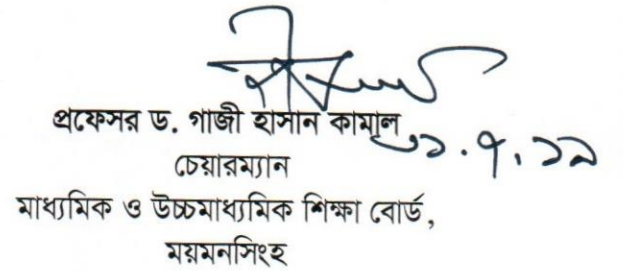 প্রফেসর ড. গাজী হাসান কামাল
৩১.৭.১৯
চেয়ারম্যান
মাধ্যমিক ও উচ্চমাধ্যমিক শিক্ষা বোর্ড,
ময়মনসিংহ